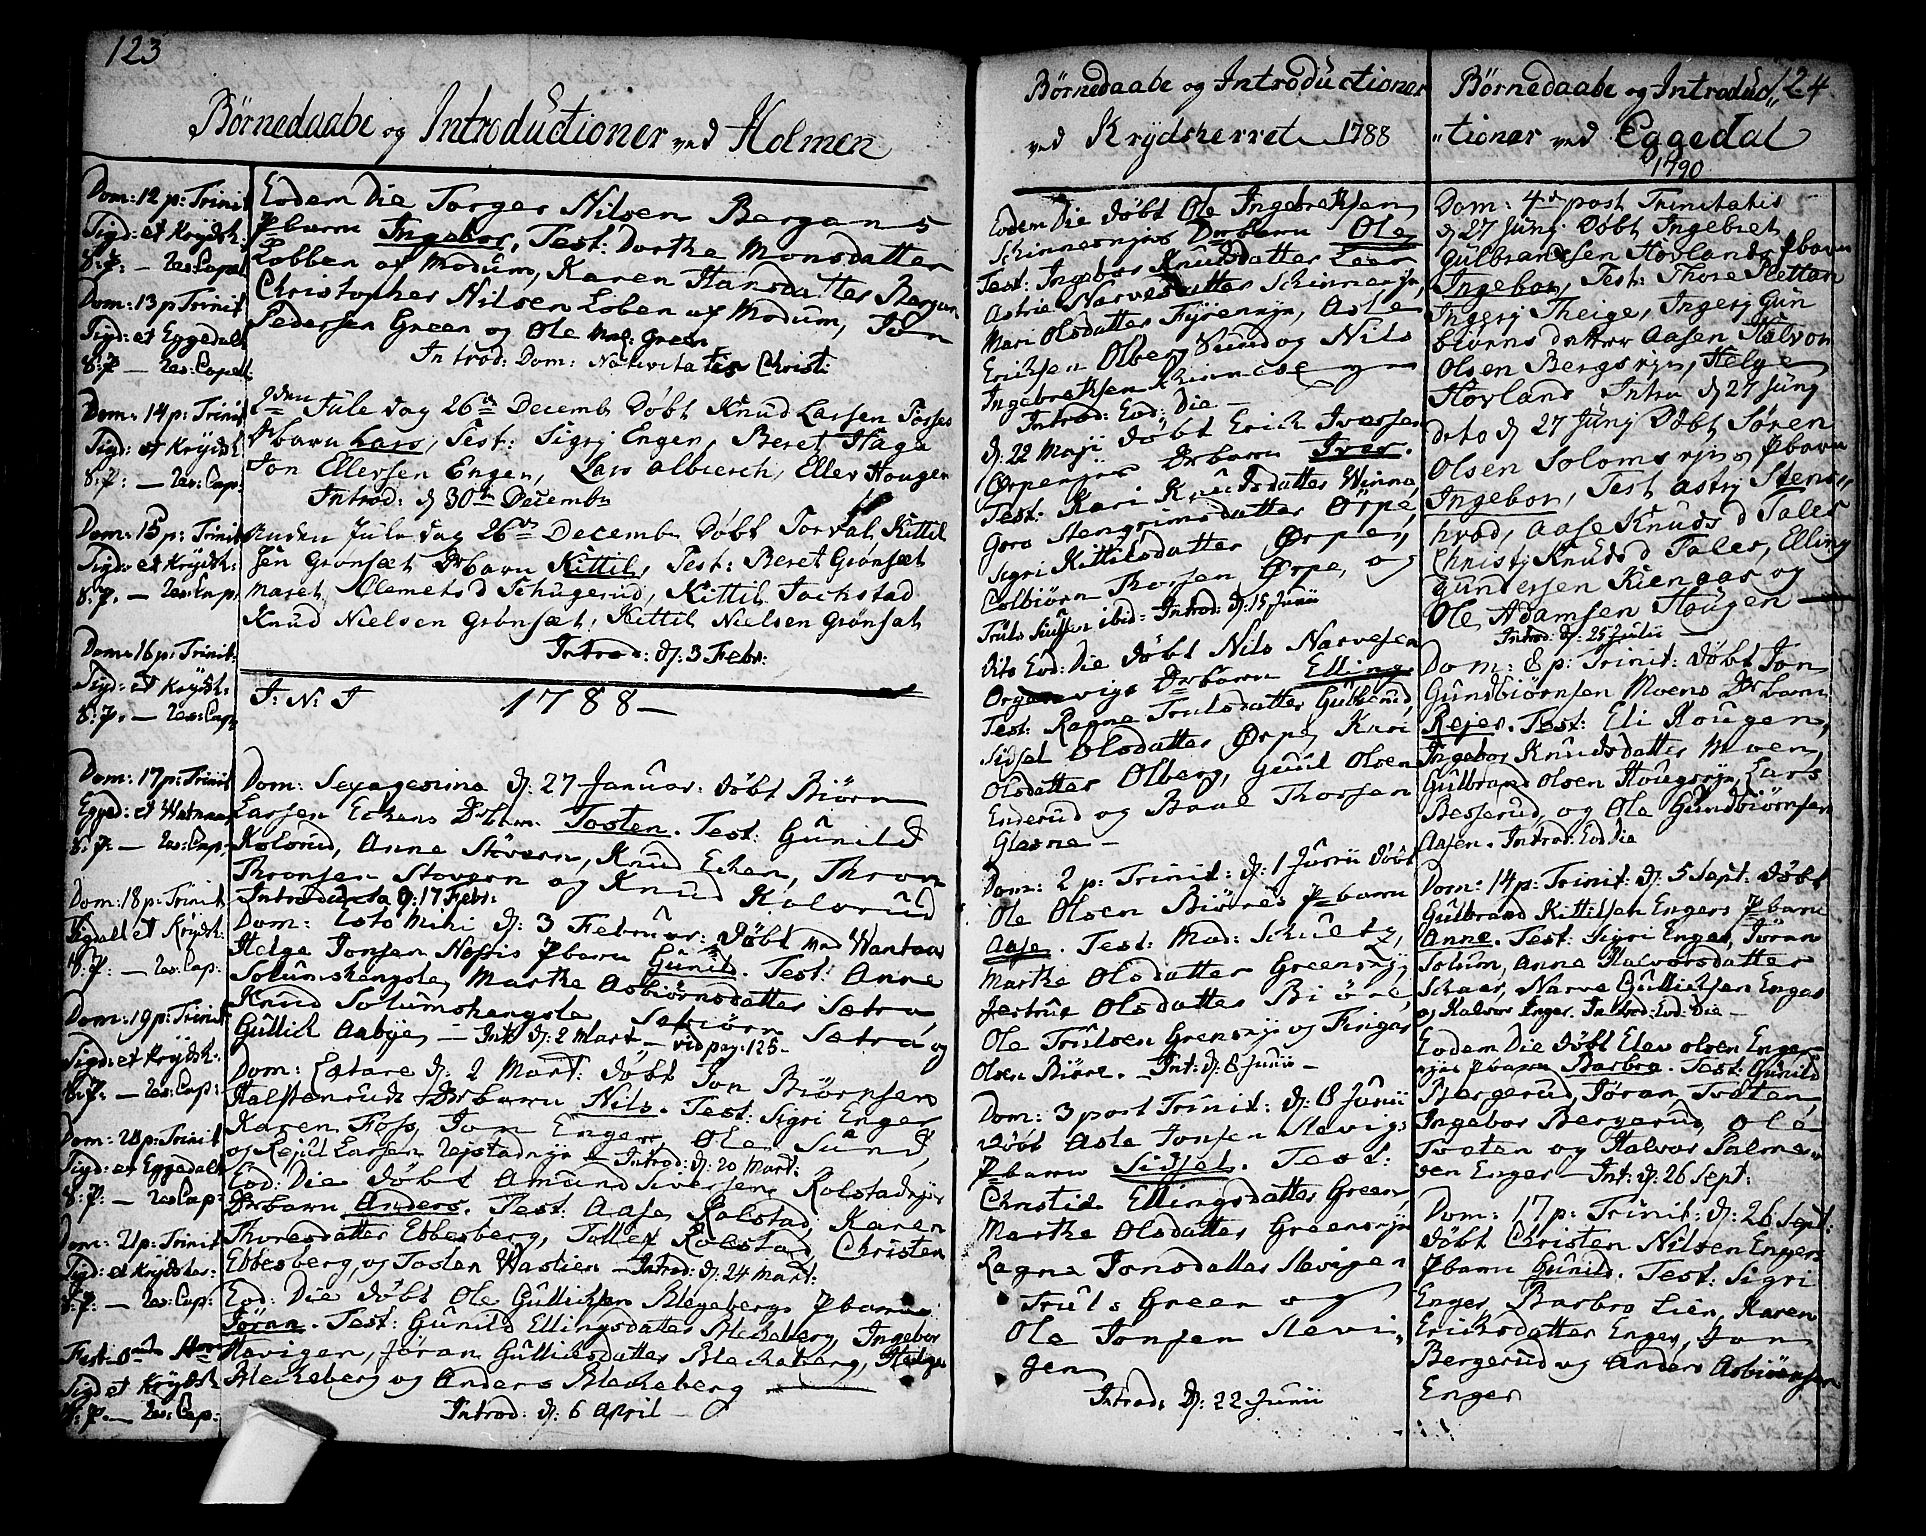 123
Börnedaabe og Introductioner ved Holmen
Dom: 12 p: Trinit
Sigd: et Krydsh:
S: P: — Res: Capel
Dom: 13 p Trinit
Sigd: et Eggedal
S: P — Res: Capel:
Dom: 14 p: Trinit
Sigd: et Krydsh
S: P: — Res: Cap:
Dom: 15 p: Trinit
Sigd: et Krydsh:
S: P. — Res: Cap:
Dom: 16 p: Trinit:
Sigd: et Krydsh:
S: P. — Res: Cap:
Dom: 17 p: Trinit
Egged: et Watnaas
S: P. — Res: Cap:
Dom: 18 p: Trinit
Sigdall et Krydsh:
S: P: — Res: Cap:
Dom: 19 p: Trinit
Sigd: et Krydsh:
S: P: — Res: Cap:
Dom: 20 p: Trinit
Sigd: et Eggedal
S: P. — Res Cap:
Dom: 21 p: Trinit
Sigd: et Krydsher:
S: P: — Res: Cap:
Fest:
Sigd et Krydsh
S: P. — Res: Cap:
Eodem Die Torger Nilsen Bergans
Pbarn Ingebor, Test: Dorthe Monsdatter
Lobben af Modum, Karen Hansdatter Bergan
Christopher Nilsen Loben af Modum, Jon
Pedersen Green og Ole Green
Introd: Dom: Nativitatis Christi
2den Jule dag 26 Decemb Döbt Knud Larsen Fosses
Drbarn Lars, Test: Sigrj Engen, Beret Haga
Jon Ellevsen Engen, Lars Ellev Hougen
Introd: d 30 Decembr
Anden Jule dag 26 Decemb Döbt Torval Kittil
sen Grönset Drbarn Kittil, Test: Beret Grönset
Maret Clemetsd Skugerud, Kittil Jackstad
Knud Nielsen Grönset, Kittil Nielsen Grönset
Introd: d: 3 Febr:
J: N: J 1788 —
Dom: Sexagesima d: 27 Januar: Döbt Biörn
Larsen Eckens Drbarn Tosten. Test: Gunild
Kolsrud, Anne Stövern, Knud Ecken, Thron
Thronsen Stovern og Knud Kolsrud
Introducta d: 17 Febr:
Dom: Esto Mihi d: 3 Februar: Döbt
Helge Jonsen Pbarn Gunild. Test: Anne
Solumshengsle, Marthe Asbiörnsdatter Sætra,
Knud Solumshengsle, Sætra og
Gullich Aabye — Int: d: 2 Mart — vid pag: 125 —
Dom: Estare d: 2 Mart: Döbt Jon Biörnsen
Halstenruds Drbarn Nils. Test: Sigri Enger
Karen Foss, Jon Enger, Ole Sund,
og Rejul Larsen — Introd: d: 20 Mart:
Eod: Die Döbt Amund Siversen Rolstadnys
Drbarn Anders. Test: Aase Rolstad, Karen
Thoresdatter Ebbesberg, Tollef Rolstad, Christen
Ebbesberg, og Tosten Wastien — Introd: d: 24 Mart:
Eod: Die Döbt Ole Gullichsen Blegebergs Pbarn
Jöran. Test: Gunild Ellingsdatter Bleckeberg, Ingebor
Hevigen, Jöran Gullichsdatter Bleckeberg, Helge
Bleckeberg og Anders Bleckeberg —
Introd: d: 6 April —
Börnedaabe og Introductioner
ved Krydsherret 1788
Eodem Die Döbt Ole Ingebrethsen
Skinnesnjes Drbarn Ole
Test: Ingebor Knudsdatter
Astrie Narvesdatter Skinnesnje,
Mari Olsdatter, Asle
Erichsen Olberg Sund og Nils
Ingebrethsen
Introd: Eod: Die —
d: 22 Maji Döbt Erich Iversen
Ørpenjes Drbarn Iver.
Test: Kari Knudsdatter Winna,
Goro Stengrimsdatter Ørpe,
Sigri Kittilsdatter Ørpe,
Colbiörn Thorsen Ørpe, og
Truls ibid — Introd: d: 15 Junii
dito Eod: Die Döbt Nils Narvesen
Drbarn Elling
Test: Ragne Trulsdatter Gubberud,
Sidsel Olsdatter Ørpe, Kari
Olsdatter Olberg, Juul Olsen
Enderud og Baal Thorsen
Glesne —
Dom: 2 p: Trinit: d: 1 Junii Döbt
Ole Olsen Biöres Pbarn
Aase. Test: Mad: Schultz,
Marthe Olsdatter Greensnje,
Jertrud Olsdatter Biöre,
Ole Trulsen Grensnje og Fingar
Olsen Biöre. — Int: d: 8 Junii —
Dom: 3 post Trinit: d: 8 Junii
Döbt Asle Jonsen Slevigs
Pbarn Sidsel. Test:
Christie Ellingsdatter Green,
Marthe Olsdatter Greensnje
Ragne Jonsdatter Slevigen
Truls Green og
Ole Jonsen Slevi„
gen
Introd: d: 22 Junii
Börnedaabe og Introduc„ 124
„tioner ved Eggedal
1790
Dom: 4 post Trinitatis
d 27 Junj Döbt Ingebret
Gulbrandsen Hovlands Pbarn
Ingebor, Test: Thore Slettan
Ingerj Theige, Ingerj Gun
biörnsdatter Aasen, Halvor
Olsen Bergsnje, Helge
Hovland Intro d 27 Junj
dito d 27 Junj Döbt Sören
Olsen Solomsnjes Pbarn
Ingebor, Test Astrj Stens„
hvad, Aase Knuds d Tales
Christj Knuds d Tales, Elling
Gundersen Kienaas og
Ole Adamsen Hougen —
Introd: d: 25 Julii —
Dom: 8 p: Trinit: Döbt Jon
Gundbiörnsen Moens Drbarn
Rejer. Test: Eli Hougen,
Ingebor Knudsdatter Moen,
Gulbrand Olsen Hougsnje, Lars
Besserud, og Ole Gundbiörnsen
Aasen. Introd: Eod: Die
Dom: 14 p: Trinit: d: 5 Sept: Döbt
Gulbrand Kittilsen Engers Pbarn
Anne. Test: Sigri Enger, Jöran
Solum, Anne Halvorsdatter
Skaar, Narve Gullichsen Enger
og Halvor Enger. Introd: Eod: Die —
Eodem Die Döbt Elev Olsen Enger
njes Pbarn Barbro. Test: Gunild
Bergerud, Jöran Tveten,
Ingebor Bergerud, Ole
Tveten og Halvor Palme„
sen Enger — Int: d: 26 Sept:
Dom: 17 p: Trinit: d: 26 Sept:
Döbt Christen Nilsen Engers
Pbarn Gunild. Test: Sigri
Enger, Barbro Lien, Karen
Ericksdatter Enger, Jon
Bergerud og Anders Asbiörnsen
Enger